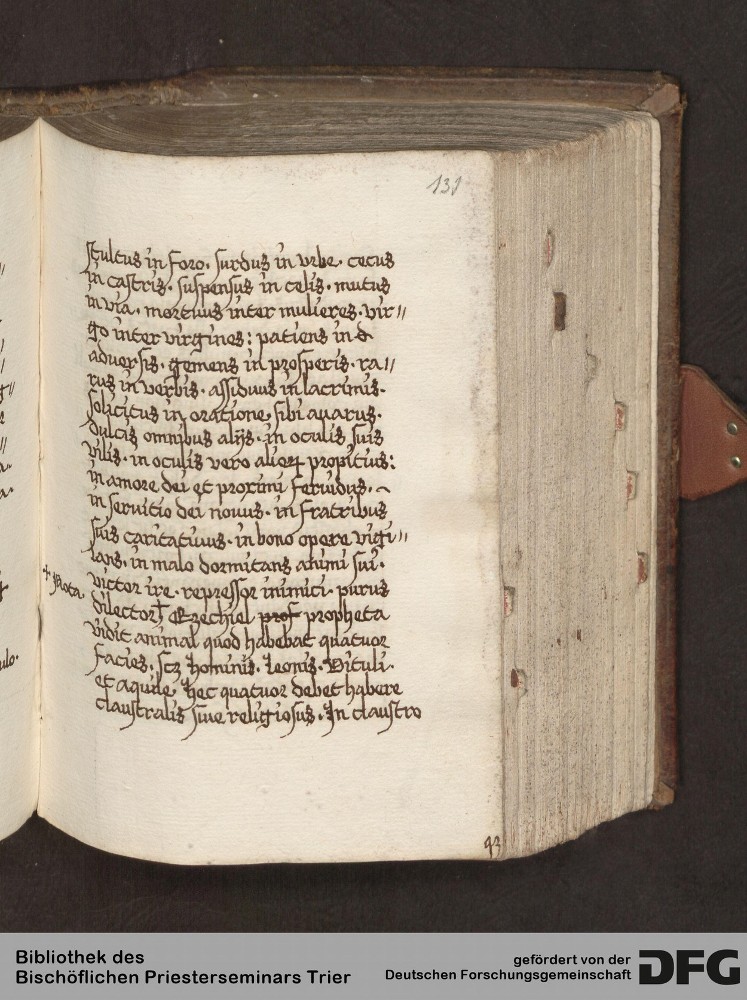 131
stultus in foro. surdus in vrbe. cecus
in castris. suspensus in celis. mutus
in via. mortuus inter mulieres. vir//
go inter virgines: patiens in d
aduersis. gemens in prosperis. ra//
rus in verbis. assiduus in lacrimis.
solicitus in oratione. sibi auarus.
dulcis omnibus alijs. in oculis suis
vilis. in oculis vero alioꝝ propitius:
in amore dei et proximi feruidus.
in seruitio dei nouus. in fratribus
suis caritatiuus. in bono opere vigi//
lans. in malo dormitans animi sui.
victor ire. repressor inimici. purus
+ Nota.
dilector† Ezechiel prof propheta
vidit animal quod habebat quatuor
facies. scz hominis. leonis. Vituli.
et aquile. hec quatuor debet habere
claustralis siue religiosus. In claustro
93
Bibliothek des
Bischöflichen Priesterseminars Trier
gefördert von der
Deutschen Forschungsgemeinschaft
DFG